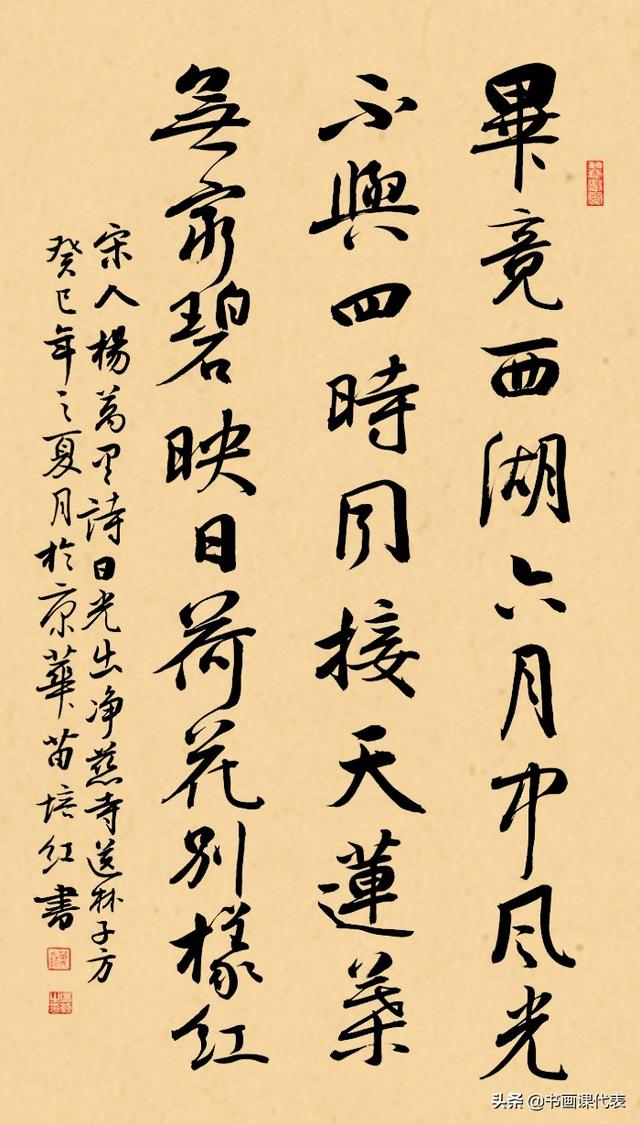 畢竟西湖六月中風光
不與四時同接天蓮葉
無窮碧映日荷花別樣紅
宋人楊萬里詩日光出净慈寺送林子方
癸巳年之夏月於京華苗培紅書
头条 @书画课代表